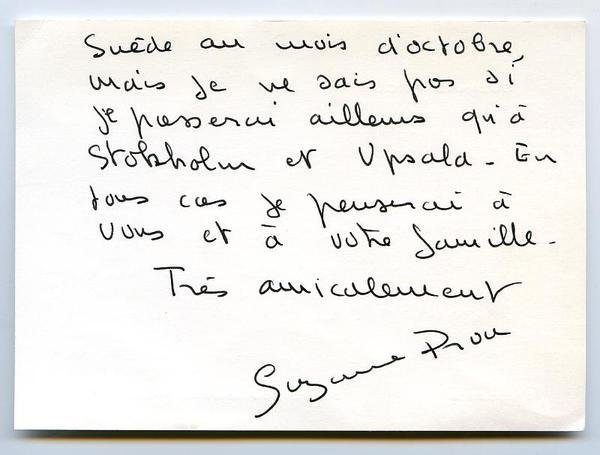 Suède au mois d'octobre,
mais je ne sais pas si
je passerai ailleurs qu'à
Stokholm et Upsala - En
tous cas je penserai à
vous et à votre famille -
Très amicalement
Suzanne Prou